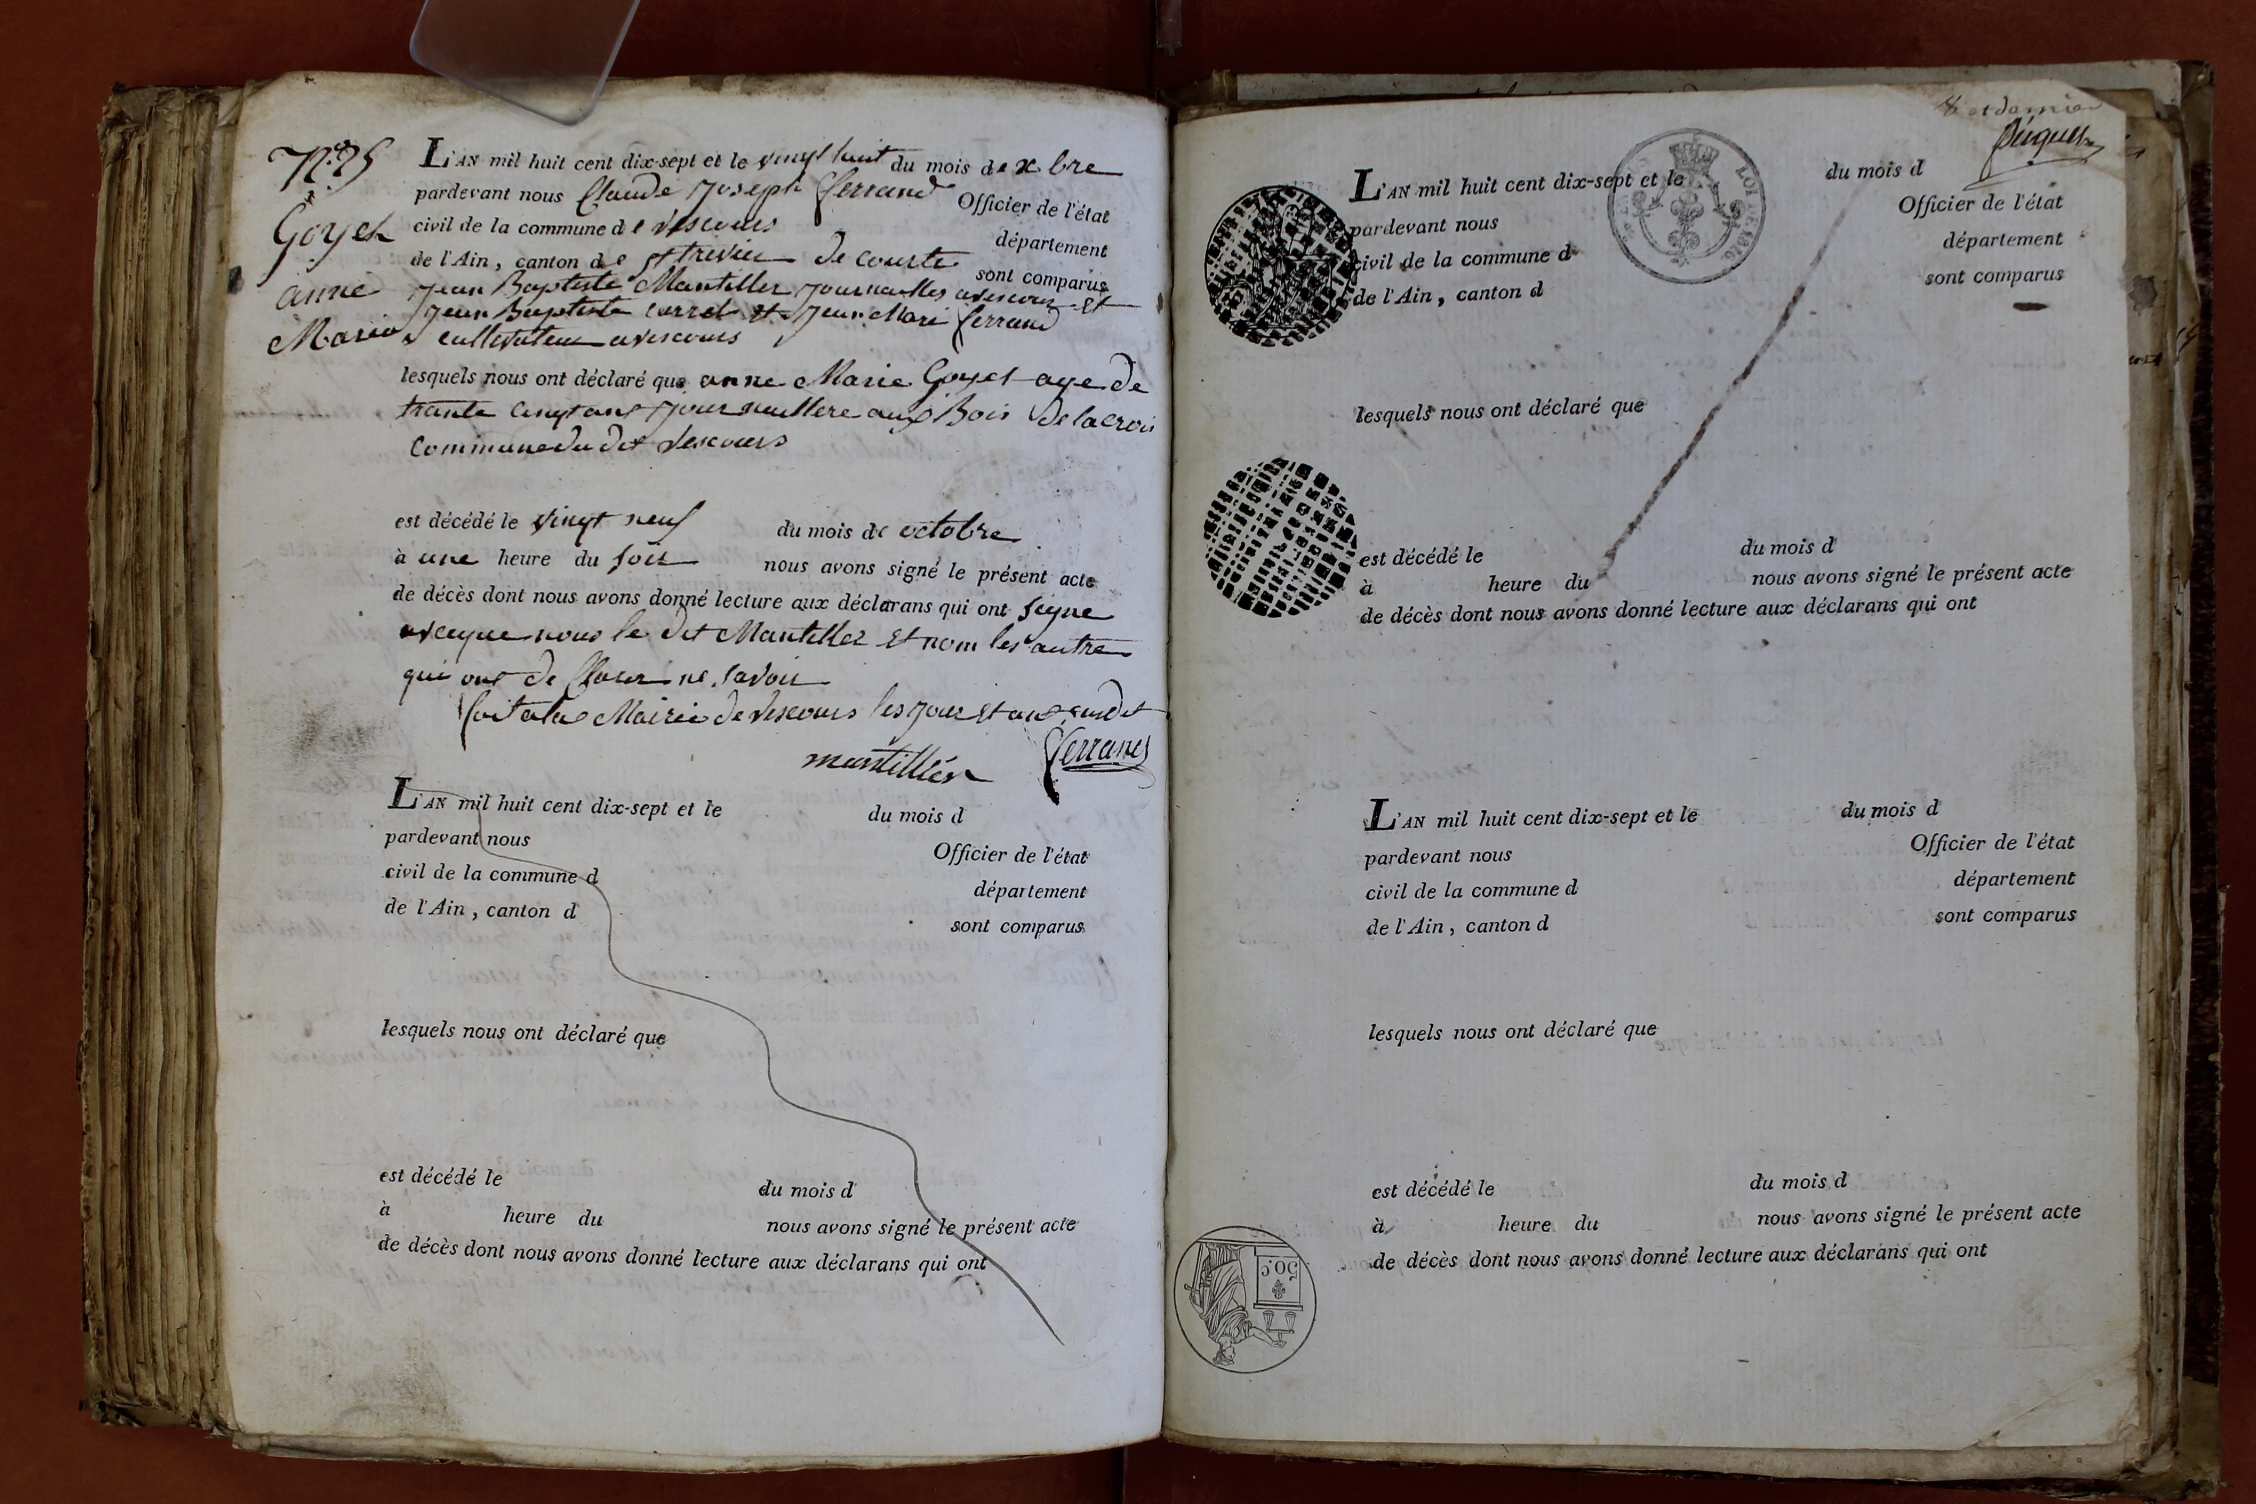 N.º 25
Goyet
anne
Marie
L'AN mil huit cent dix-sept et le vingt huit du mois de xbre
pardevant nous Claude Joseph Ferrand Officier de l'état
civil de la commune de Vescours département
de l'Ain, canton de St trivier de courte sont comparus
Jean Baptiste Mantillier Journallier a vescours et
Jean Baptiste et Jean Marie ferrand
cultivateur a vescours
lesquels nous ont déclaré que anne Marie Goyet age de
trante cinq ans Journalliere aux Bois de lacroix
commune du dit Vescours
est décédé le vingt neuf du mois de octobre
à une heure du soir nous avons signé le présent acte
de décès dont nous avons donné lecture aux déclarans qui ont signe
avecque nous le dit Mantillier et nom les autre
qui ont de ne savoir
fait a la Mairie de Vescours les jour et ans susdit
mantillier Ferrand
L'AN mil huit cent dix-sept et le du mois d
pardevant nous Officier de l'état
civil de la commune d département
de l'Ain, canton d sont comparus
lesquels nous ont déclaré que
est décédé le du mois d
à heure du nous avons signé le présent acte
de décès dont nous avons donné lecture aux déclarans qui ont
8 et dernier
L'AN mil huit cent dix-sept et le du mois d
pardevant nous Officier de l'état
civil de la commune d département
de l'Ain, canton d sont comparus
LOI DE 1816
lesquels nous ont déclaré que
est décédé le du mois d
à heure du nous avons signé le présent acte
de décès dont nous avons donné lecture aux déclarans qui ont
L'AN mil huit cent dix-sept et le du mois d
pardevant nous Officier de l'état
civil de la commune d département
de l'Ain, canton d sont comparus
lesquels nous ont déclaré que
est décédé le du mois d
à heure du nous avons signé le présent acte
de décès dont nous avons donné lecture aux déclarans qui ont
50 c.